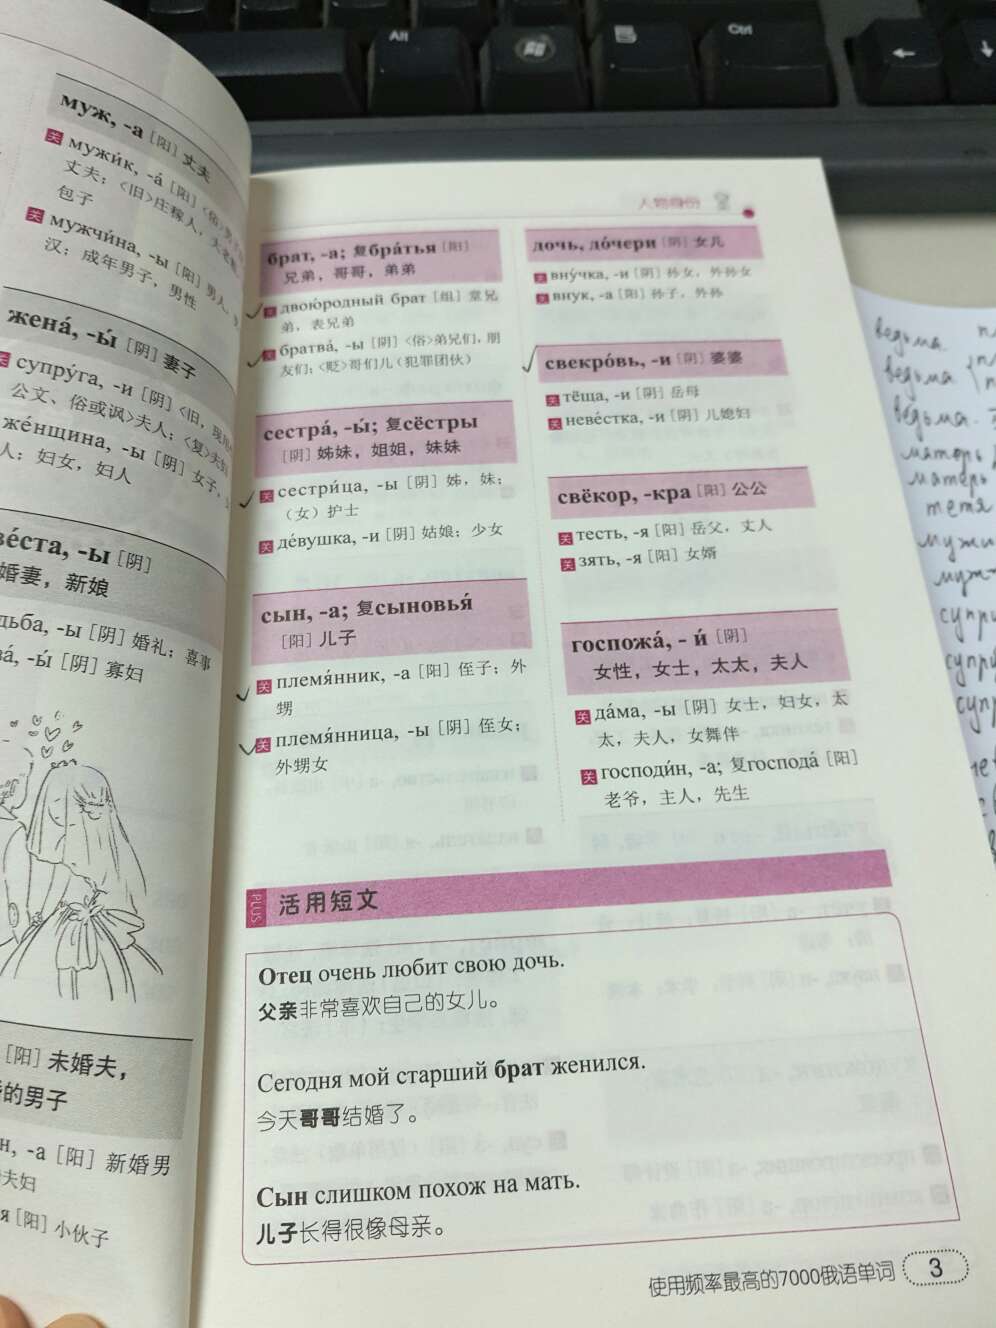 муж, -а [阳] 丈夫
关 мужи́к, -а́ [阳] <俗>男子
丈夫；<旧>庄稼人，大老粗，
包子
关 мужчи́на, -ы [阳] 男人，男
汉；成年男子，男性
жена́, -ы́ [阴] 妻子
关 супру́га, -и [阴] <旧，现用于
公文、俗或讽>夫人；<复>夫妇
же́нщина, -ы [阴] 女子，
人；妇女，妇人
ве́ста, -ы [阴]
婚妻，新娘
дьба, -ы [阴] 婚礼；喜事
ва́, -ы́ [阴] 寡妇
[阳] 未婚夫，
的男子
н, -а [阳] 新婚男
夫妇
я [阳] 小伙子
人物身份
брат, -а; 复бра́тья [阳]
兄弟，哥哥，弟弟
关 двою́родный брат [组] 堂兄
弟，表兄弟
关 братва́, -ы [阴] <俗>弟兄们，朋
友们；<贬>哥们儿（犯罪团伙）
сестра́, -ы́; 复сёстры
[阴] 姊妹，姐姐，妹妹
关 сестри́ца, -ы [阴] 姊，妹；
（女）护士
关 де́вушка, -и [阴] 姑娘；少女
сын, -а; 复сыновья́
[阳] 儿子
关 племя́нник, -а [阳] 侄子；外
甥
关 племя́нница, -ы [阴] 侄女；
外甥女
дочь, до́чери [阴] 女儿
关 вну́чка, -и [阴] 孙女，外孙女
关 внук, -а [阳] 孙子，外孙
свекро́вь, -и [阴] 婆婆
关 тёща, -и [阴] 岳母
关 неве́стка, -и [阴] 儿媳妇
свёкор, -кра [阳] 公公
关 тесть, -я [阳] 岳父，丈人
关 зять, -я [阳] 女婿
госпожа́, - и́ [阴]
女性，女士，太太，夫人
关 да́ма, -ы [阴] 女士，妇女，太
太，夫人，女舞伴
关 господи́н, -а; 复господа́ [阳]
老爷，主人，先生
PLUS 活用短文
Отец очень любит свою дочь.
父亲非常喜欢自己的女儿。
Сегодня мой старший брат женился.
今天哥哥结婚了。
Сын слишком похож на мать.
儿子长得很像母亲。
使用频率最高的7000俄语单词 3
Alt
Ctrl
ведьма
ведьма
ведьма
матерь
матерь
тетя